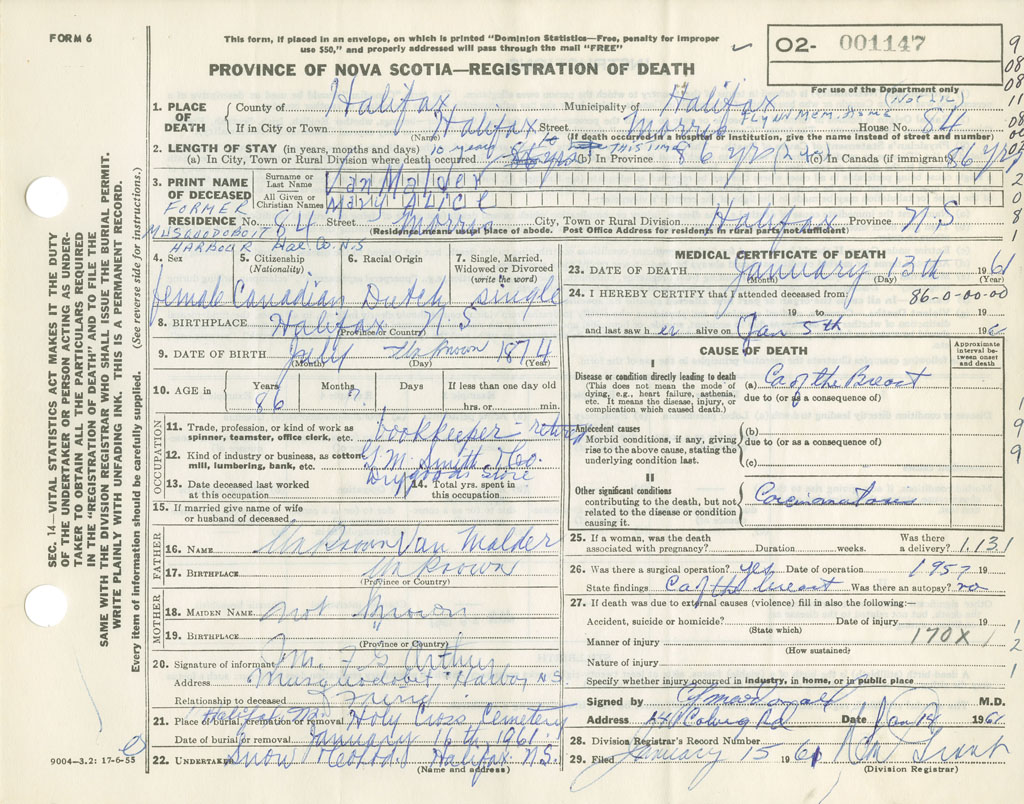 FORM 6
This form, if placed in an envelope, on which is printed "Dominion Statistics—Free, penalty for improper
use $50," and properly addressed will pass through the mail "FREE"
02- 001147
PROVINCE OF NOVA SCOTIA—REGISTRATION OF DEATH
For use of the Department only
1. PLACE OF DEATH
County of Halifax Municipality of Halifax
FLYNN MEM. HOME
If in City or Town Halifax Street Morris House No. 84
(Name) (If death occurred in a hospital or institution, give the name instead of street and number)
2. LENGTH OF STAY (in years, months and days) 10 years THIS TIME
(a) In City, Town or Rural Division where death occurred (b) In Province 86 yr (c) In Canada (if immigrant) 86 yr
3. PRINT NAME OF DECEASED
Surname or Last Name Van Malder
All Given or Christian Names Mary Alice
FORMER
RESIDENCE No. 84 Street Morris City, Town or Rural Division Halifax Province N.S
(Residence means usual place of abode. Post Office Address for residents in rural parts not sufficient)
MUSQUODOBOIT
HARBOUR Hal. Co. N.S
4. Sex female
5. Citizenship (Nationality) Canadian
6. Racial Origin Dutch
7. Single, Married, Widowed or Divorced (write the word) single
8. BIRTHPLACE Halifax N.S
(Province or Country)
9. DATE OF BIRTH July Unknown 1874
(Month) (Day) (Year)
10. AGE in Years 86 Months Days If less than one day old
hrs. or min.
OCCUPATION
11. Trade, profession, or kind of work as spinner, teamster, office clerk, etc. bookkeeper - retired
12. Kind of industry or business, as cotton mill, lumbering, bank, etc. Smith & Co.
Drygoods store
13. Date deceased last worked at this occupation
14. Total yrs. spent in this occupation
15. If married give name of wife or husband of deceased
FATHER
16. NAME Unknown Van Malder
17. BIRTHPLACE Unknown
(Province or Country)
MOTHER
18. MAIDEN NAME not known
19. BIRTHPLACE
(Province or Country)
20. Signature of informant Mr. F G Arthur
Address Musquodoboit Harbor N S
Relationship to deceased Friend
21. Place of burial, cremation or removal Halifax Holy Cross Cemetery
Date of burial or removal January 16th 1961
22. UNDERTAKER Snow Halifax N.S.
(Name and address)
9004—3.2: 17-6-55
MEDICAL CERTIFICATE OF DEATH
23. DATE OF DEATH January 13th 1961
(Month) (Day) (Year)
24. I HEREBY CERTIFY that I attended deceased from: 86-0-00-00
19 to 19
and last saw her alive on Jan 5th 196
CAUSE OF DEATH
Approximate interval between onset and death
I
Disease or condition directly leading to death
(This does not mean the mode of dying, e.g., heart failure, asthenia, etc. It means the disease, injury, or complication which caused death.)
(a) Ca of the Breast
due to (or as a consequence of)
Antecedent causes
Morbid conditions, if any, giving rise to the above cause, stating the underlying condition last.
(b)
due to (or as a consequence of)
(c)
II
Other significant conditions
contributing to the death, but not related to the disease or condition causing it.
25. If a woman, was the death associated with pregnancy? Duration weeks. Was there a delivery? 1.131
26. Was there a surgical operation? yes Date of operation 1957 19
State findings Ca of the breast Was there an autopsy? no
27. If death was due to external causes (violence) fill in also the following:—
Accident, suicide or homicide? Date of injury 19
(State which)
Manner of injury 170X
(How sustained)
Nature of injury
Specify whether injury occurred in industry, in home, or in public place
Signed by M.D.
Address Coburg Rd Date Jan 14 1961
28. Division Registrar's Record Number
29. Filed January 15 1961 Grant
(Division Registrar)
SEC. 14—VITAL STATISTICS ACT MAKES IT THE DUTY
OF THE UNDERTAKER OR PERSON ACTING AS UNDER-
TAKER TO OBTAIN ALL THE PARTICULARS REQUIRED
IN THE "REGISTRATION OF DEATH" AND TO FILE THE
SAME WITH THE DIVISION REGISTRAR WHO SHALL ISSUE THE BURIAL PERMIT.
WRITE PLAINLY WITH UNFADING INK. THIS IS A PERMANENT RECORD.
Every item of information should be carefully supplied. (See reverse side for instructions.)